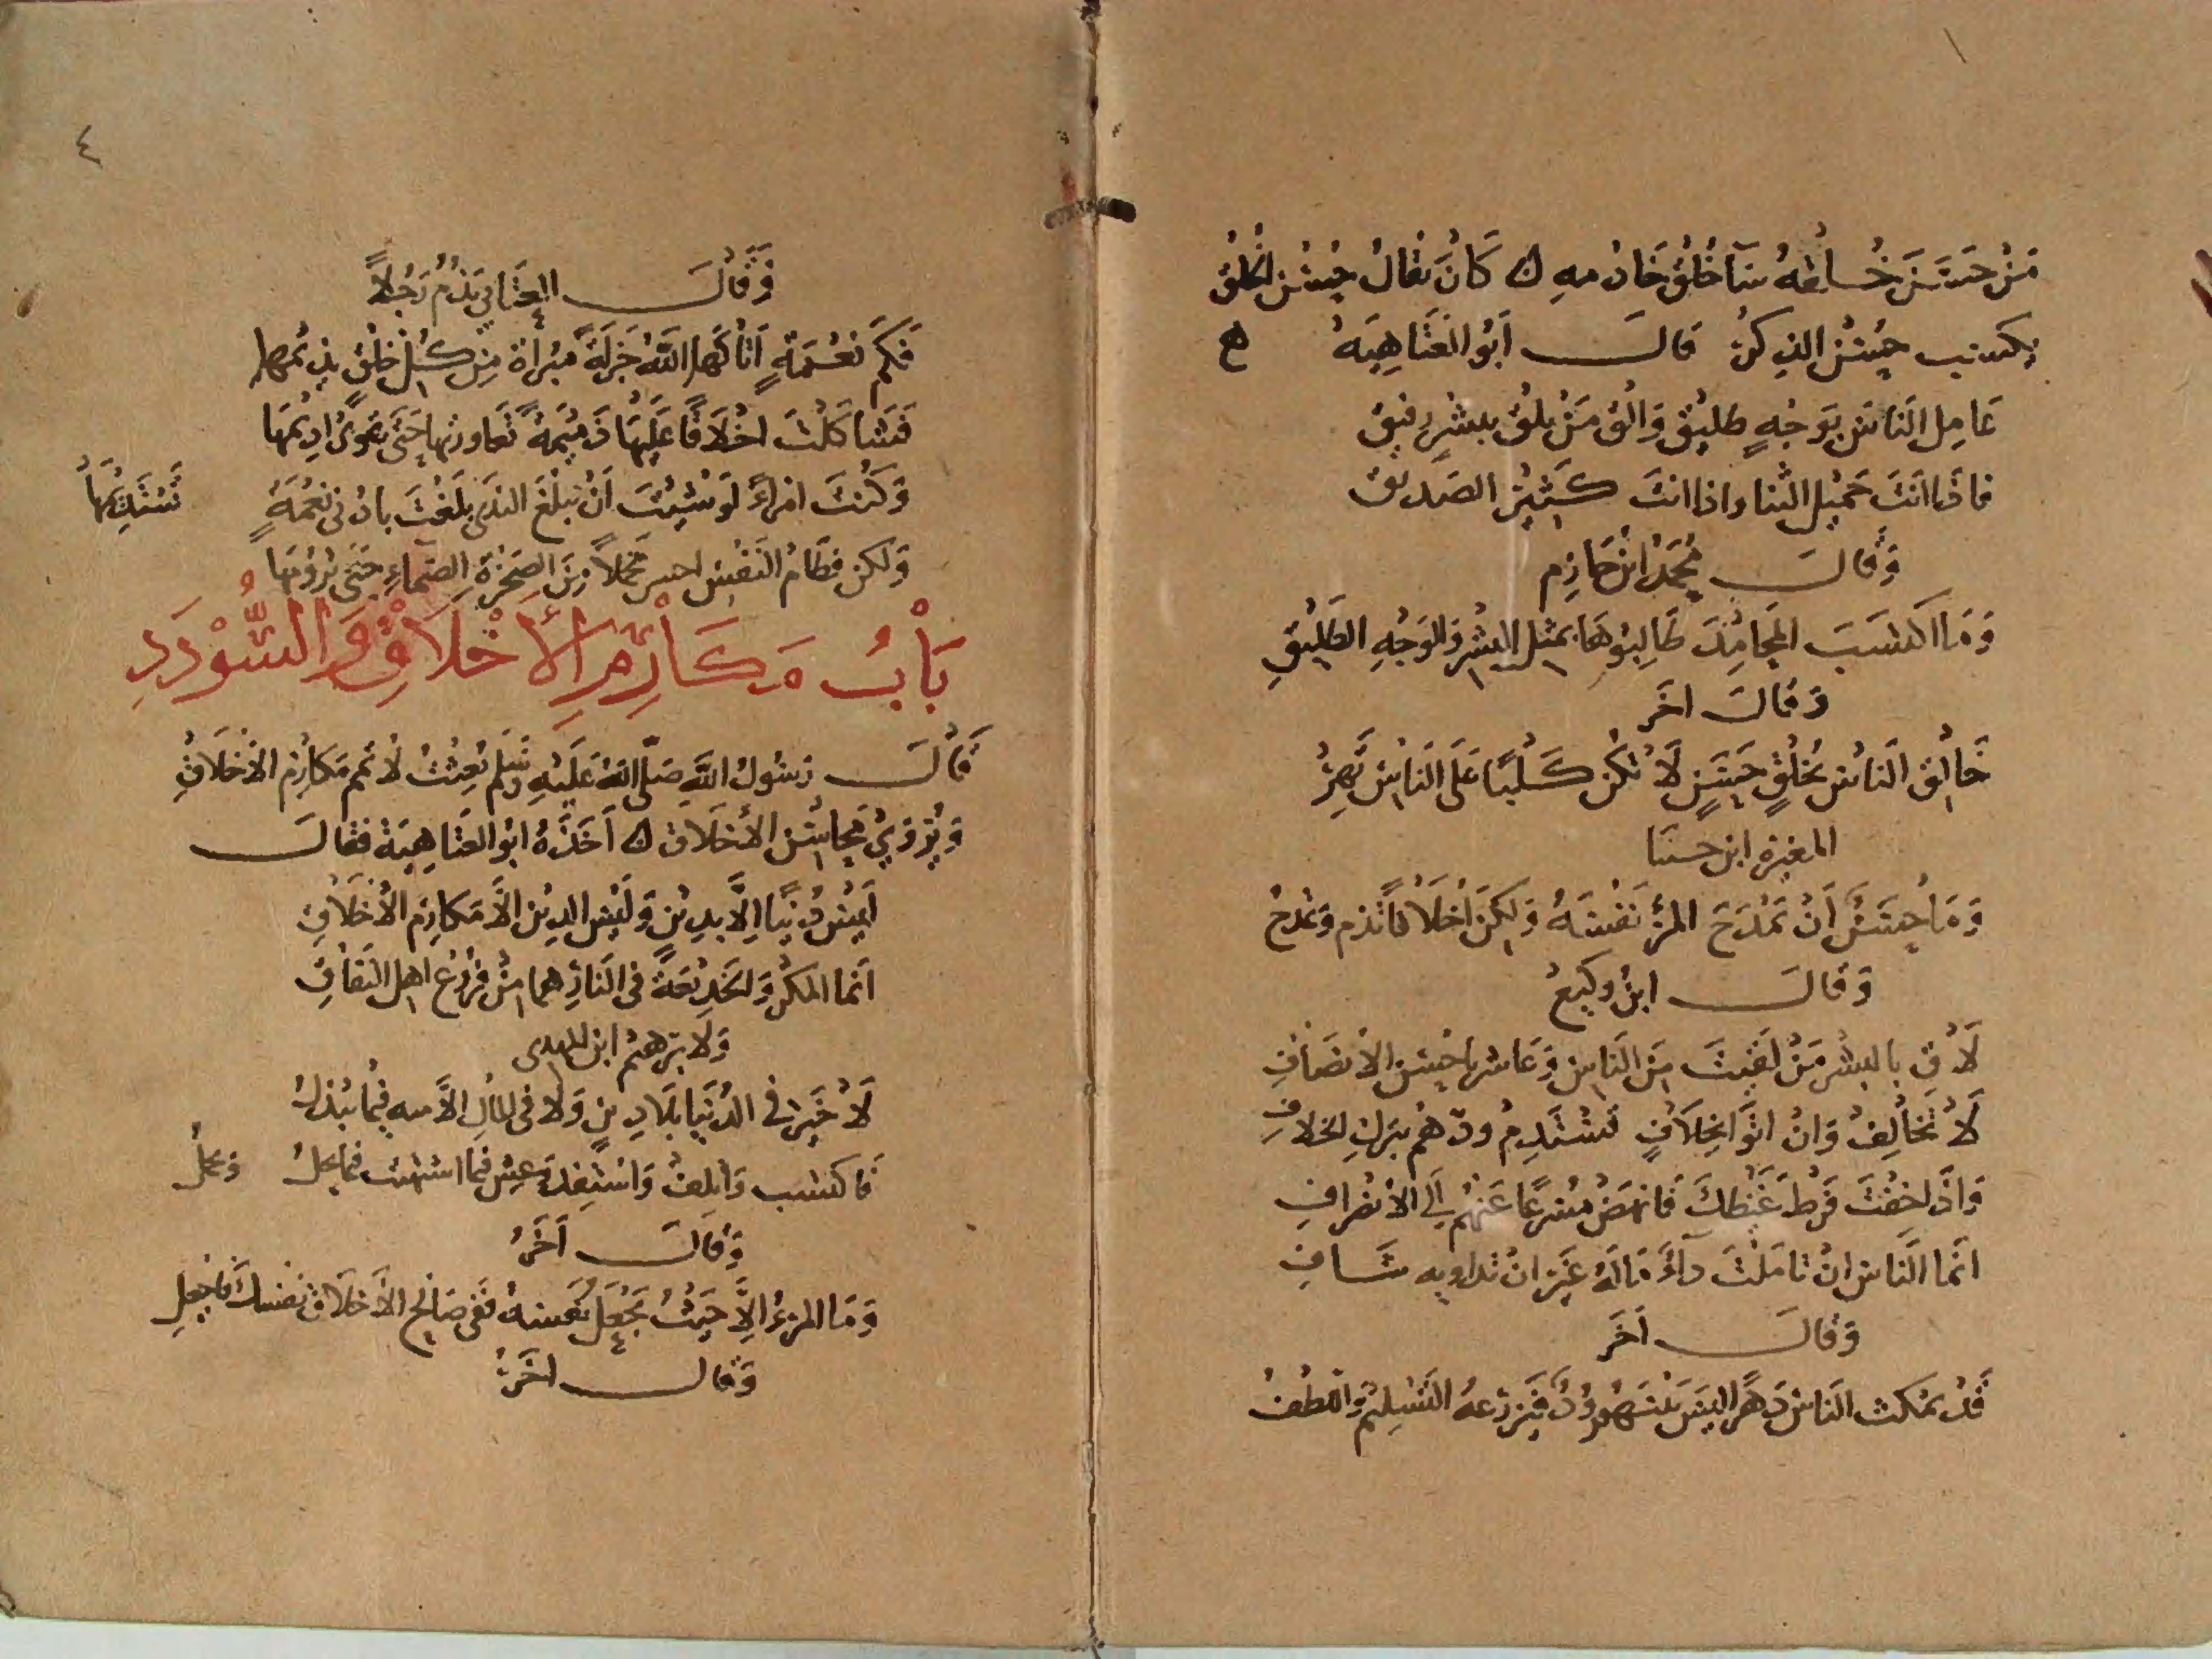 مَنْ حَسَنَ خُلقهُ سآ خُلُق خادمهِ ن كَانَ يقالُ حُسْن الخُلُق
يكسب حُسْن الذكرُ قالَ أبُو العَتَاهِيَهُ
عَامِل النَاسَ بِوَجْهٍ طليْقٍ وَالْقَ مَنْ يلْق ببشْرٍ رفيق
فاذا انتَ جَميْل الثنا واذا انتَ كَثيْر الصَديق
وَقالَ مُحَمّدُ ابْن حَازِم
وَمَا اكتسَبَ المَحَامِدَ طَالِبُوهَا بمثل البِشْر والوَجْهِ الطَلِيْقِ
وَقالَ اخَر
خَالِق الناسَ بخُلْقٍ حَسَنٍ لَا تَكُن كَلْبًا عَلَى النَاسِ تَهِرْ
المغيرة ابن حسنا
وَمَا حَسَنٌ أنْ تمْدَحَ المرْ نفْسَهُ وَلكِنَّ اخْلاقًا تذم وَتمدحُ
وَقَالَ ابنُ وكيعُ
لَاقِ بالبشْر مَنْ لقيْتَ مِنَ النَاسِ وَعَاشر باحْسَن الانصَافِ
لَا تخَالِفْ وَانْ اتَوا بخِلَافٍ تسْتَدِمْ ودّهُمْ بتركِ الخلافِ
وَاذا خِفْتَ فرْطَ غَيْظكَ فَانهَضْ مسْرعًا عَنهُمْ الي الانْصرافِ
انّمَا النَاس انْ تامَلتَ دآءٌ مَالَهُ غيْر انْ تداويه شَافِ
وَقالَ آخَر
قَدْ يمكث النَاسُ دَهرًا لَيسَ بَيْنَهُم وُدٌّ فيَزْرَعهُ التسْلِيْمُ وَاللطفُ
٤
وَقَالَ العتَابي يَذمُ رَجُلاً
فَكَم نعْمَةٍ آتَاكَهَا اللهُ جَزلَةً مبْرأة مِن كُلِ خلْقٍ يذيمُها
فَشاكَلْتَ اخْلَاقًا عَليْهَا ذَميْمَةً تَعَاورنها حَتَى تعرى اديْمهَا
وَكُنتَ امْرأً لَوْ شئْتَ أنْ تبلُغَ الندَى بلَغْتَ بادْنى نعْمَةٍ تَسْتَدِيْمُهَا
وَلكن فطَامُ النَفْس احسر محملاً مِنَ الصَخْرَةِ الصَماءِ حَتَى ترُوْمَها
بَابُ مَكَارِمِ الأخْلَاقِ وَالسُّوْدَدِ
قَالَ رَسُولُ اللهِ صَلّى اللهُ عَلَيْهِ وَسَلم بُعِثْتُ لاتمم مَكارِم الاخْلَاقِ
وَيُرْوَى مَحَاسْن الأخلَاق ن أخَذهُ ابُو العَتَاهِيَة فقالَ
ليْسَ دُنيًا اِلّا بدِيْنٍ وَليْسَ الديْن الاّ مَكارِم الأخْلاقِ
انّما المكْر وَالخَدِيْعَةً في النَارِ هما منْ فرُوْع اهْل النِفَاقِ
وَلابرَهيْمُ ابن المهدى
لَا خَيْرَ في الدُنيَا بلَا دِينٍ وَلَا في المَالِ الاّ مه فيْمَا يبْذلُ
فاكتسِب وَأتْلِفْ وَاسْتفِدْ وَعِش فيما اشتهيت فيما يحل وَيجملُ
وَقالَ آخَرُ
وَمَا المرْءُ الاَّ حَيْثُ يَجْعَلُ نَفْسهُ فَفي صَالِح الأخلَاق نفْسكَ فَاجْعلِ
وَقالَ اخَرُ